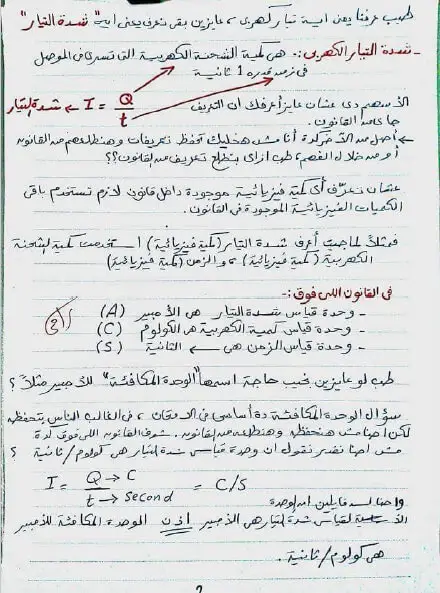 طيب عرفنا يعني اية تيار كهربى ، عايزين بقى نعرف يعنى اية "شدة التيار"
- شدة التيار الكهربى :- هى كمية الشحنة الكهربية التى تسرى فى الموصل
فى زمن قدره 1 ثانية
I = Q / t ← شدة التيار
الأسهم دى عشان عايز أعرفك ان التعريف
جاى من القانون.
← أصل من الآخر كدة أنا مش هخليك تحفظ تعريفات وهنطلعهم من القانون
أو من خلال الفهم ، طب ازاى بنطلع تعريف من القانون؟؟
عشان نعرّف أى كمية فيزيائية موجودة داخل قانون لازم نستخدم باقى
الكميات الفيزيائية الموجودة فى القانون.
فمثلاً لما جيت أعرف شدة التيار (كمية فيزيائية) استخدمت كمية الشحنة
الكهربية (كمية فيزيائية) ، والزمن (كمية فيزيائية)
فى القانون اللى فوق :-
- وحدة قياس شدة التيار هى الأمبير (A)
- وحدة قياس كمية الكهربية هى الكولوم (C)
- وحدة قياس الزمن هى ← الثانية (S)
طب لو عايزين نجيب حاجة اسمها "الوحدة المكافئة" للأمبير مثلاً ؟
سؤال الوحدة المكافئة دة أساسى فى الامتحان ، فى الغالب الناس بتحفظه
لكن احنا مش هنحفظه وهنطلعه من القانون. شوف القانون اللى فوق كدة
مش احنا نقدر نقول ان وحدة قياس شدة التيار هى كولوم/ثانية ؟
I = Q → C / t → second = C/S
واحنا لسه قايلين ان الوحدة
لقياس شدة التيار هى الأمبير إذن الوحدة المكافئة للأمبير
هى كولوم/ثانية.
2